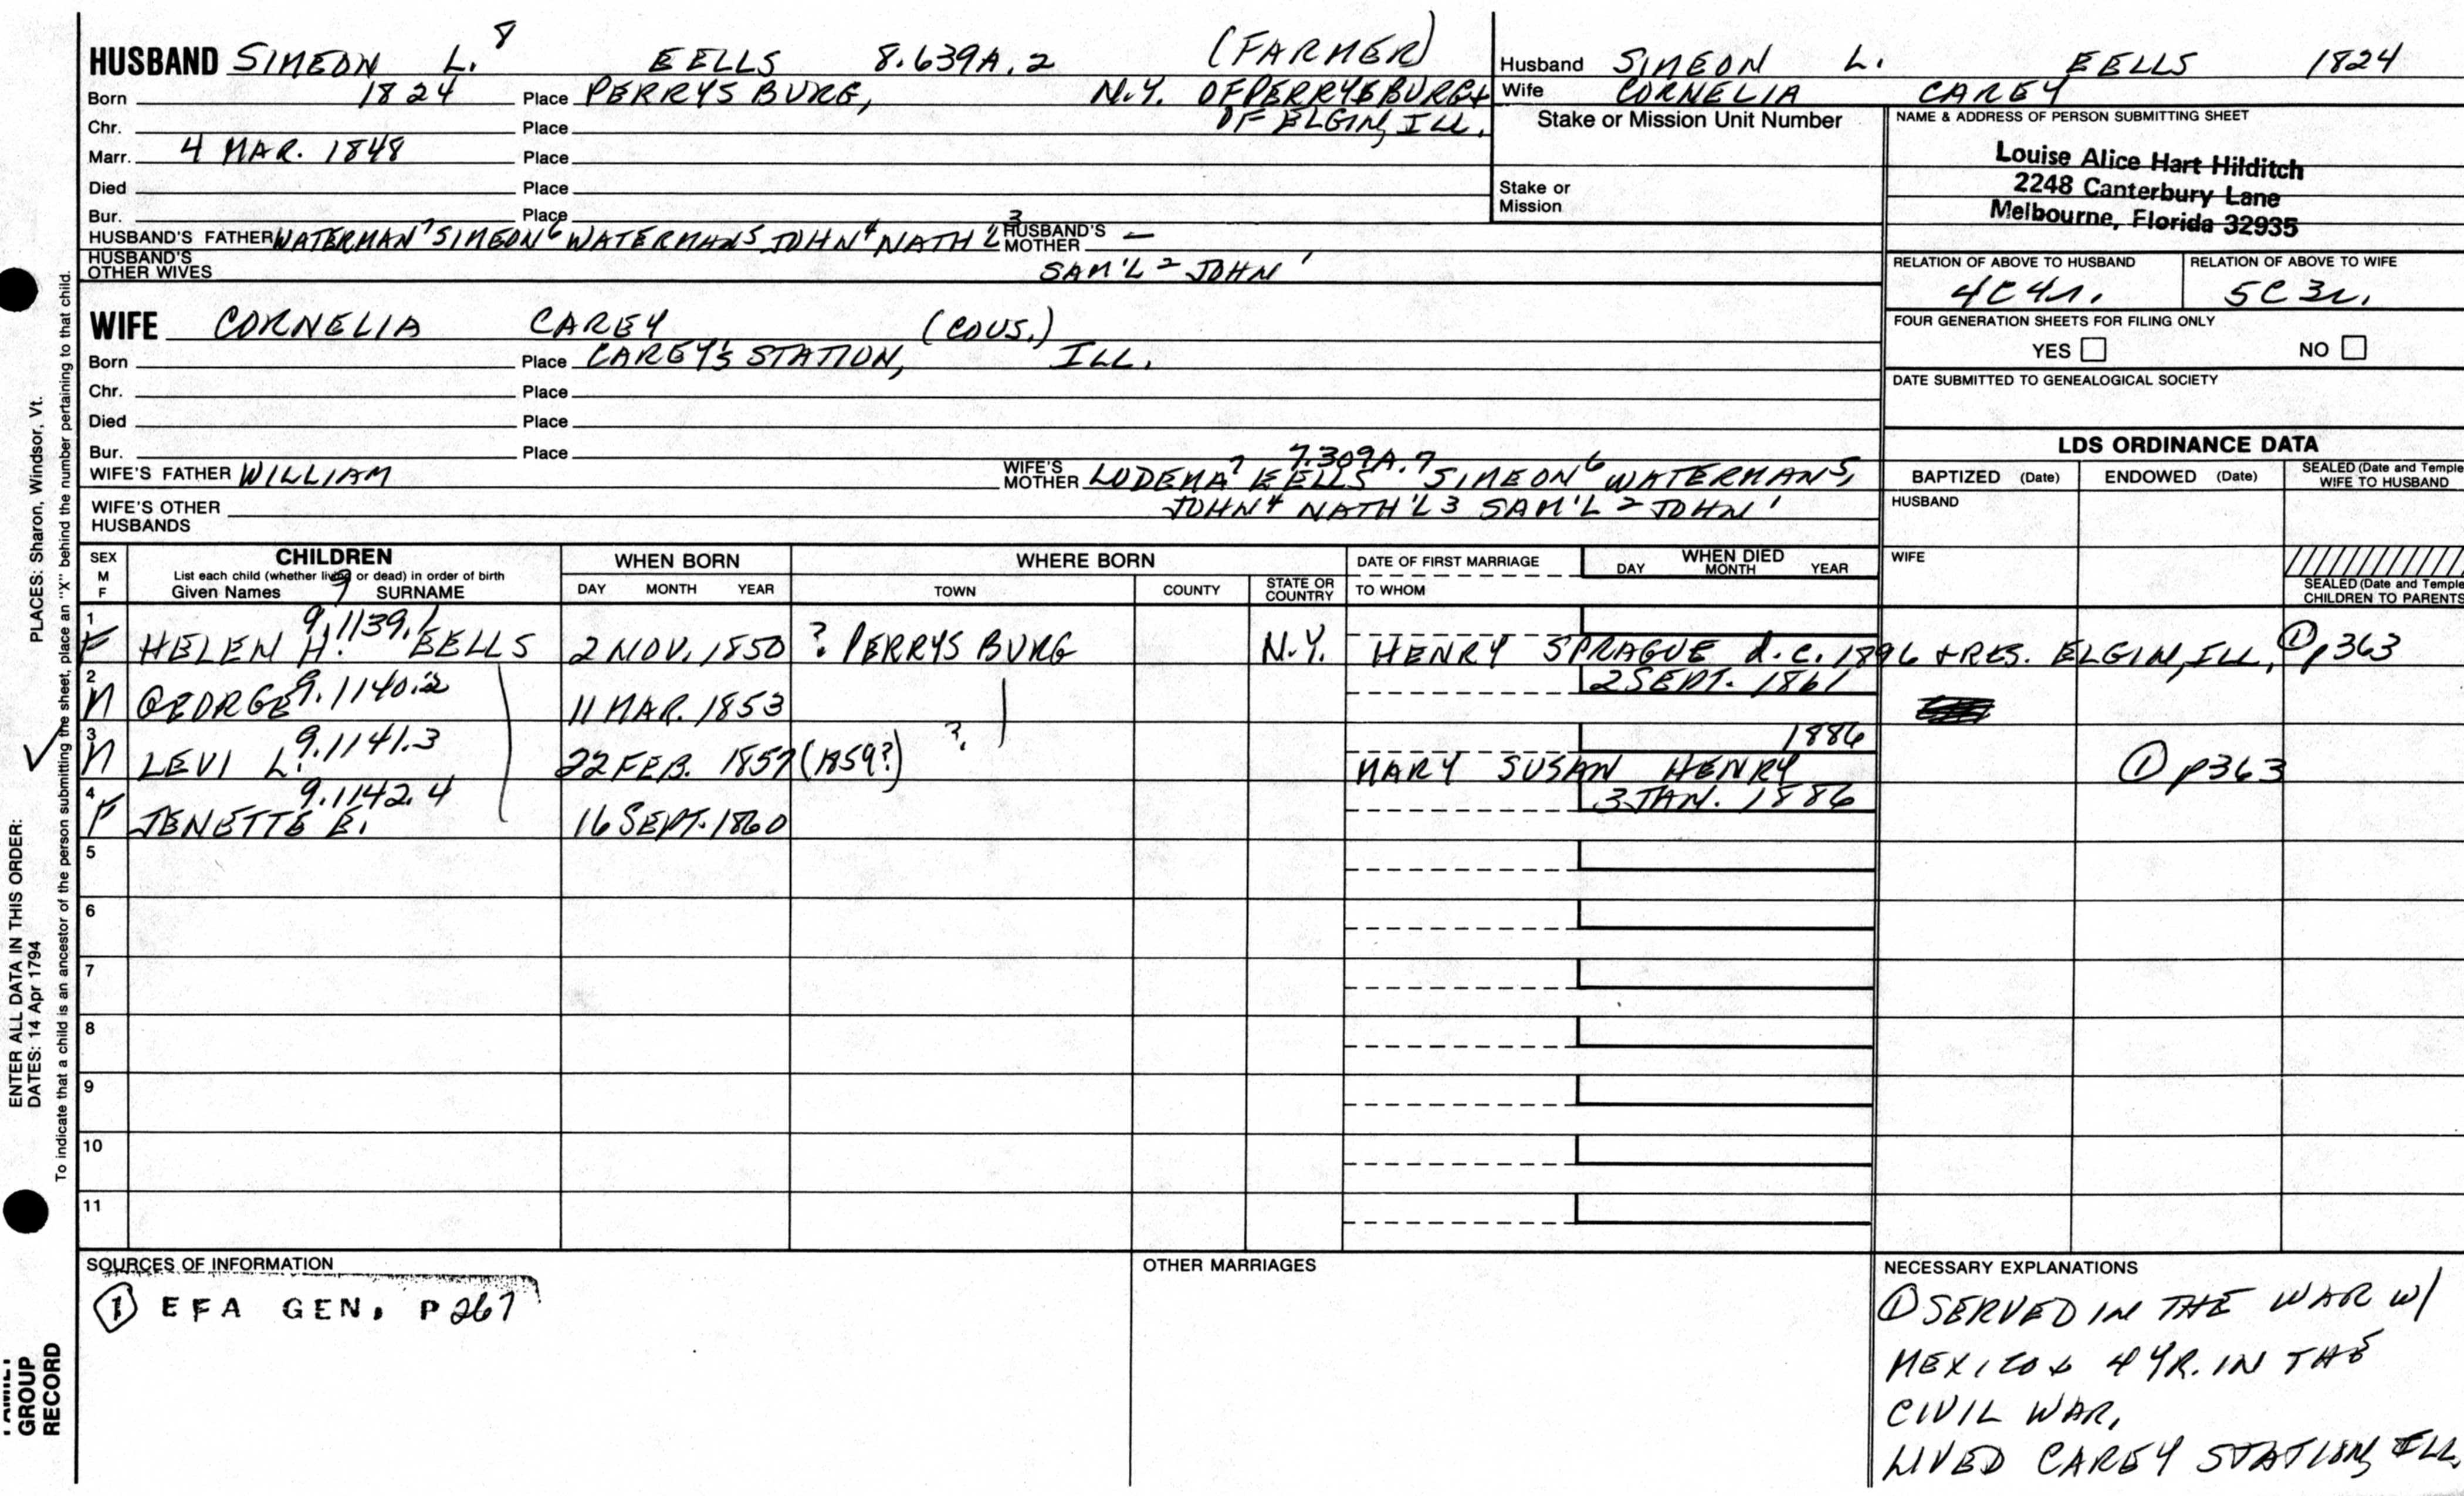 HUSBAND SIMEON L. 8 EELLS 8.639A.2 (FARMER)
Born 1824 Place PERRYSBURG, N.Y. OF PERRYSBURG &
Chr. Place OF ELGIN, ILL.
Marr. 4 MAR. 1848 Place
Died Place
Bur. Place
HUSBAND'S FATHER WATERMAN 7 SIMEON 6 WATERMAN 5 JOHN 4 NATH'L 3 HUSBAND'S MOTHER —
HUSBAND'S OTHER WIVES SAM'L 2 JOHN 1
Husband SIMEON L. EELLS 1824
Wife CORNELIA CAREY
Stake or Mission Unit Number
Stake or Mission
NAME & ADDRESS OF PERSON SUBMITTING SHEET
Louise Alice Hart Hilditch
2248 Canterbury Lane
Melbourne, Florida 32935
RELATION OF ABOVE TO HUSBAND RELATION OF ABOVE TO WIFE
4C4r. 5C3r.
FOUR GENERATION SHEETS FOR FILING ONLY
YES NO
DATE SUBMITTED TO GENEALOGICAL SOCIETY
WIFE CORNELIA CAREY (COUS.)
Born Place CAREY'S STATION, ILL.
Chr. Place
Died Place
Bur. Place
WIFE'S FATHER WILLIAM WIFE'S MOTHER LUDEMA 7 EELLS 7.309A.7 SIMEON 6 WATERMAN 5,
WIFE'S OTHER HUSBANDS JOHN 4 NATH'L 3 SAM'L 2 JOHN 1
LDS ORDINANCE DATA
BAPTIZED (Date) ENDOWED (Date) SEALED (Date and Temple) WIFE TO HUSBAND
HUSBAND
WIFE
SEALED (Date and Temple) CHILDREN TO PARENTS
SEX M F CHILDREN WHEN BORN WHERE BORN DATE OF FIRST MARRIAGE WHEN DIED
List each child (whether living or dead) in order of birth DAY MONTH YEAR
Given Names 9 SURNAME DAY MONTH YEAR TOWN COUNTY STATE OR COUNTRY TO WHOM
1 9.1139.1
F HELEN H. EELLS 2 NOV. 1850 ? PERRYSBURG N.Y. HENRY SPRAGUE d.c. 1896 & RES. ELGIN, ILL, ① p363
2 9.1140.2 2 SEPT. 1861
M GEORGE 11 MAR. 1853
3 9.1141.3 1886
M LEVI L. 22 FEB. 1857 (1859?) ? MARY SUSAN HENRY ① p363
4 9.1142.4 3 JAN. 1886
F JENETTE E. 16 SEPT. 1860
5
6
7
8
9
10
11
SOURCES OF INFORMATION
① EFA GEN. P 267
OTHER MARRIAGES
NECESSARY EXPLANATIONS
① SERVED IN THE WAR W/
MEXICO & 4 YR. IN THE
CIVIL WAR,
LIVED CAREY STATION, ILL.
PLACES: Sharon, Windsor, Vt.
ENTER ALL DATA IN THIS ORDER:
DATES: 14 Apr 1794
To indicate that a child is an ancestor of the person submitting the sheet, place an "X" behind the number pertaining to that child.
FAMILY
GROUP
RECORD